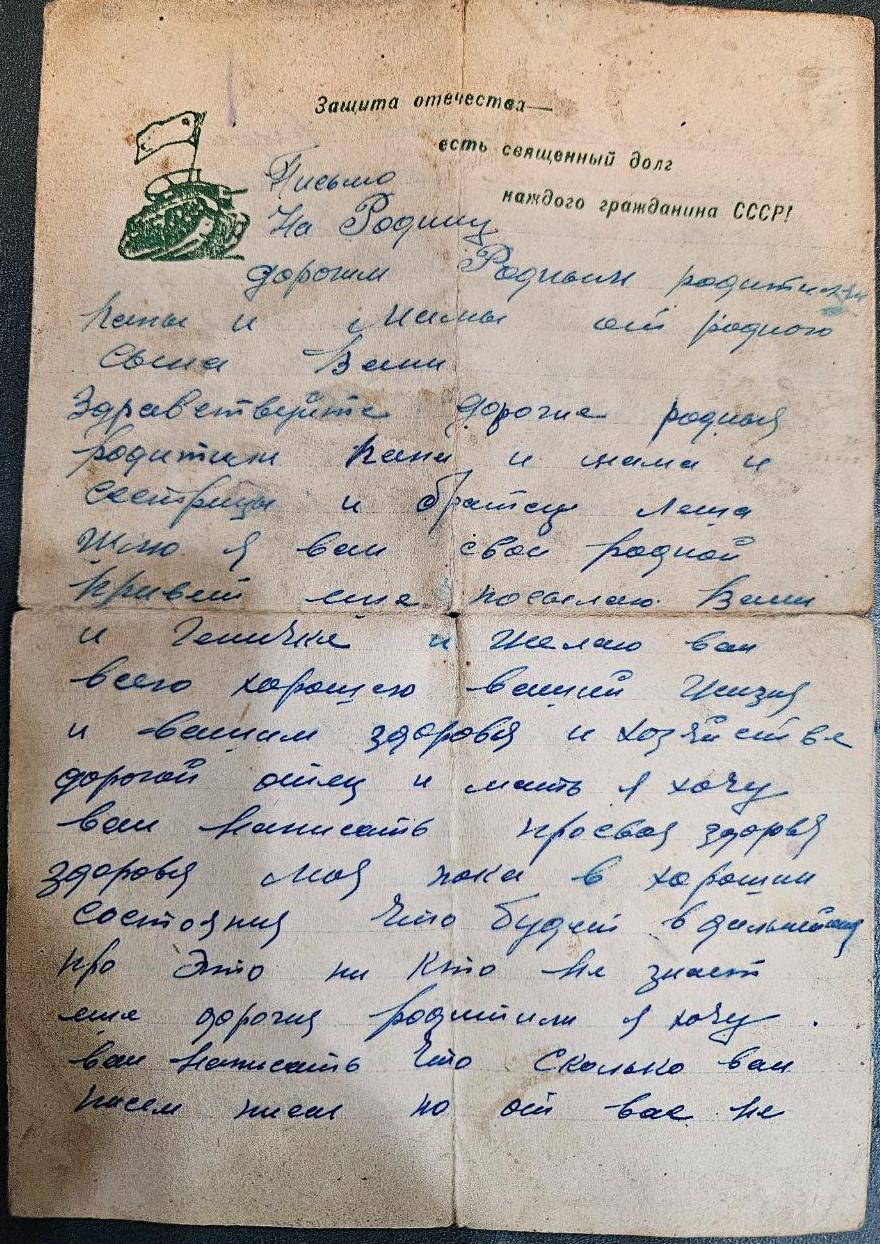 Защита отечества—
есть священный долг
каждого гражданина СССР!
Письмо
На Родину
дорогим Родным родителям
Папы и Мамы от родного
сына Вани
Здравствуйте дорогие родныя
родители папа и мама и
сестрицы и братец Леша
Шлю я вам свой родной
Привет еще посылаю Вани
и Геничке и желаю вам
всего хорошего вашей жизня
и вашим здоровья и хозяйстве
дорогой отец и мать я хочу
вам написать просвоя здоровя
здоровя моя пока в хорошим
состояния Что будит в дальнейшем
про Это ни Кто не знает
еше дорогия родители я хочу.
вам написать Что сколько вам
писем писал но от вас не